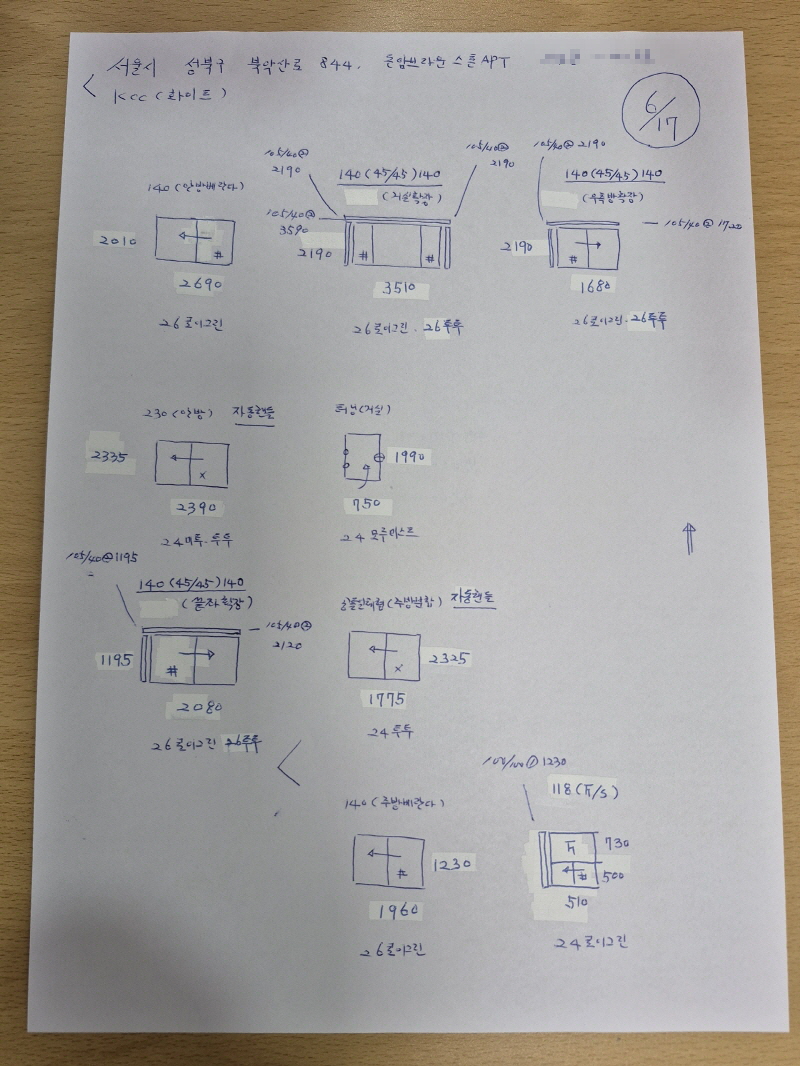 서울시 성북구 북악산로 844. 돈암브라운스톤APT
KCC (화이트)
6/17
140 (안방베란다)
2010
#
2690
26로이그린
105/40② 2190
140 (45/45) 140
(거실확장)
105/40② 2190
105/40② 3590
2190
# #
3510
26로이그린 . 26투투
105/40② 2190
140 (45/45) 140
(우측방확장)
105/40② 1720
2190
#
1680
26로이그린 . 26투투
230 (안방) 자동핸들
2335
x
2390
24미투.투투
터닝(거실)
1990
750
24모루미스트
105/40②1195
140 (45/45) 140
(끝방확장)
105/40② 2120
1195
#
2080
26로이그린 26투투
(주방분합) 자동핸들
x
2325
1775
24투투
140 (주방베란다)
#
1230
1960
26로이그린
100/100① 1230
118 (π/s)
π
730
#
500
510
24로이그린